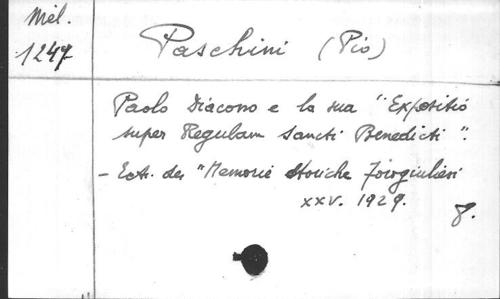 Mél.
1247
Paschini (Pio)
Paolo Diacono e la sua "Expositió
super Regulam Sancti Benedicti".
- Extr. des "Memorie Storiche Forogiuliesi
XXV. 1929.
8.